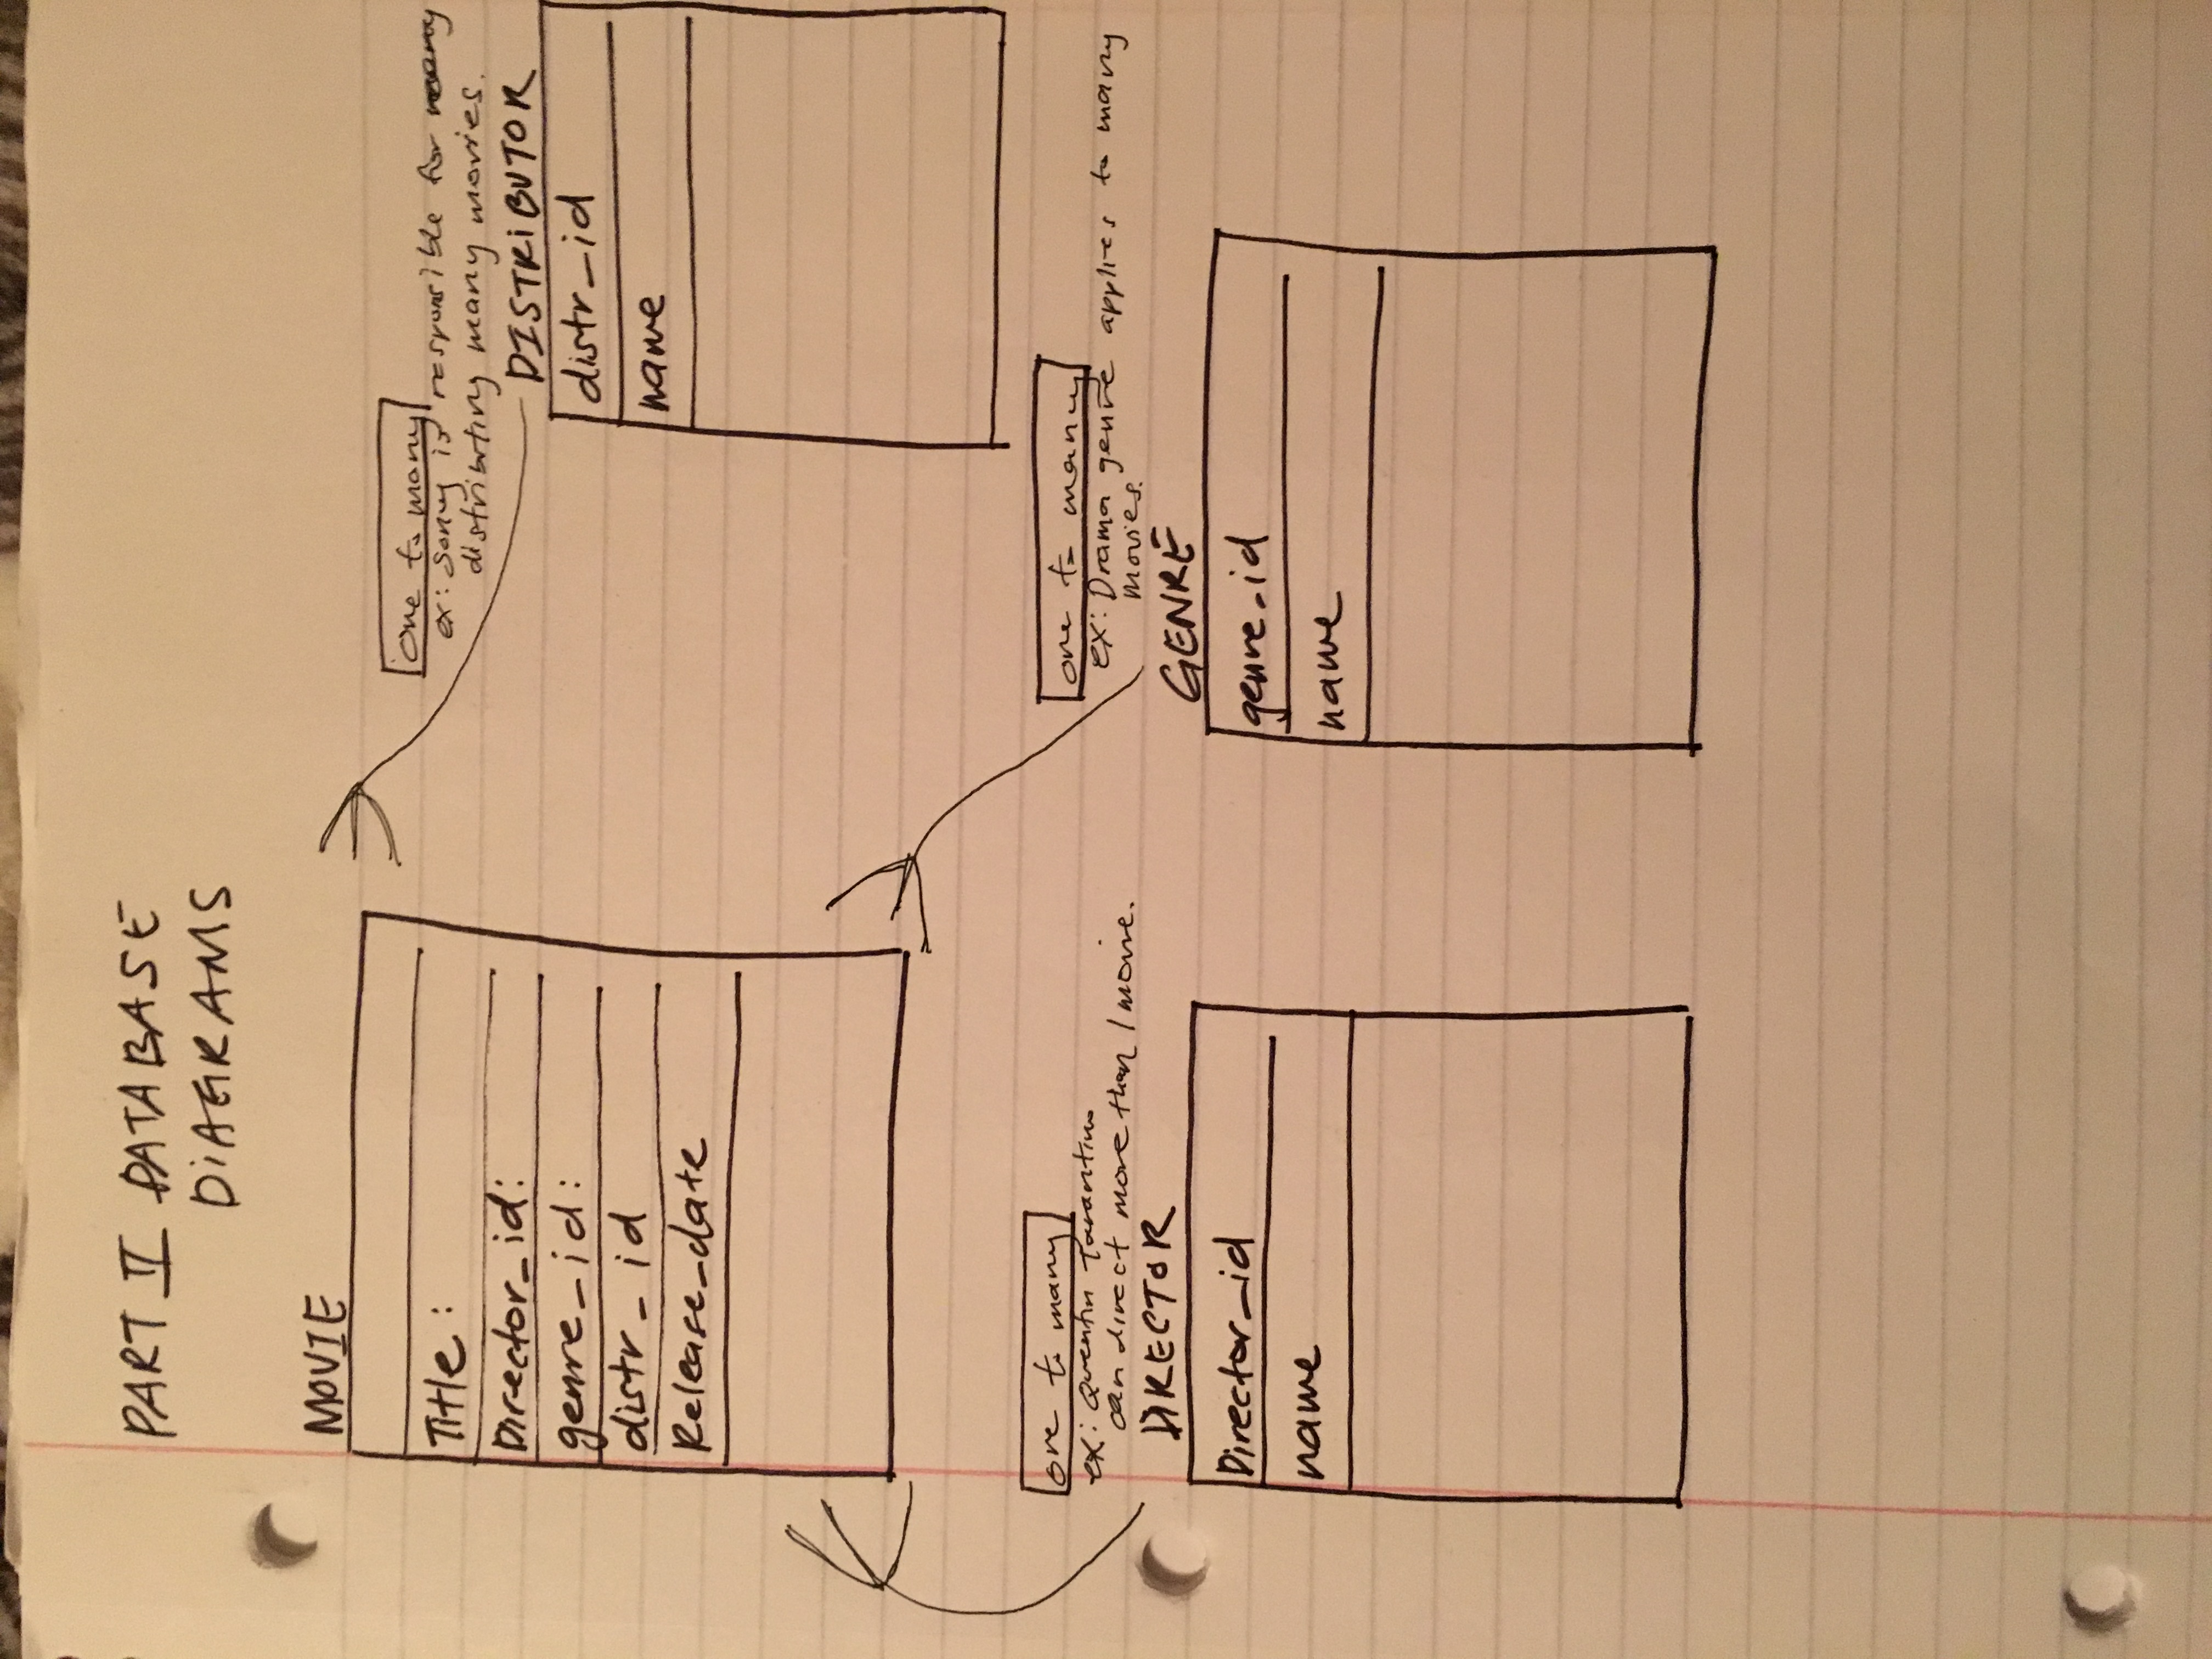 PART II DATABASE
DiAGRAMS
MOVIE
Title :
Director_id:
genre_id:
distr_id
Release_date
one to many
ex: Sony is responsible for many
distributing many movies.
DISTRiBUTOR
distr_id
name
one to many
ex: Quentin Tarantino
can direct more than 1 movie.
DIRECTOR
Director_id
name
one to many
ex: Drama genre applies to many
movies.
GENRE
genre_id
name